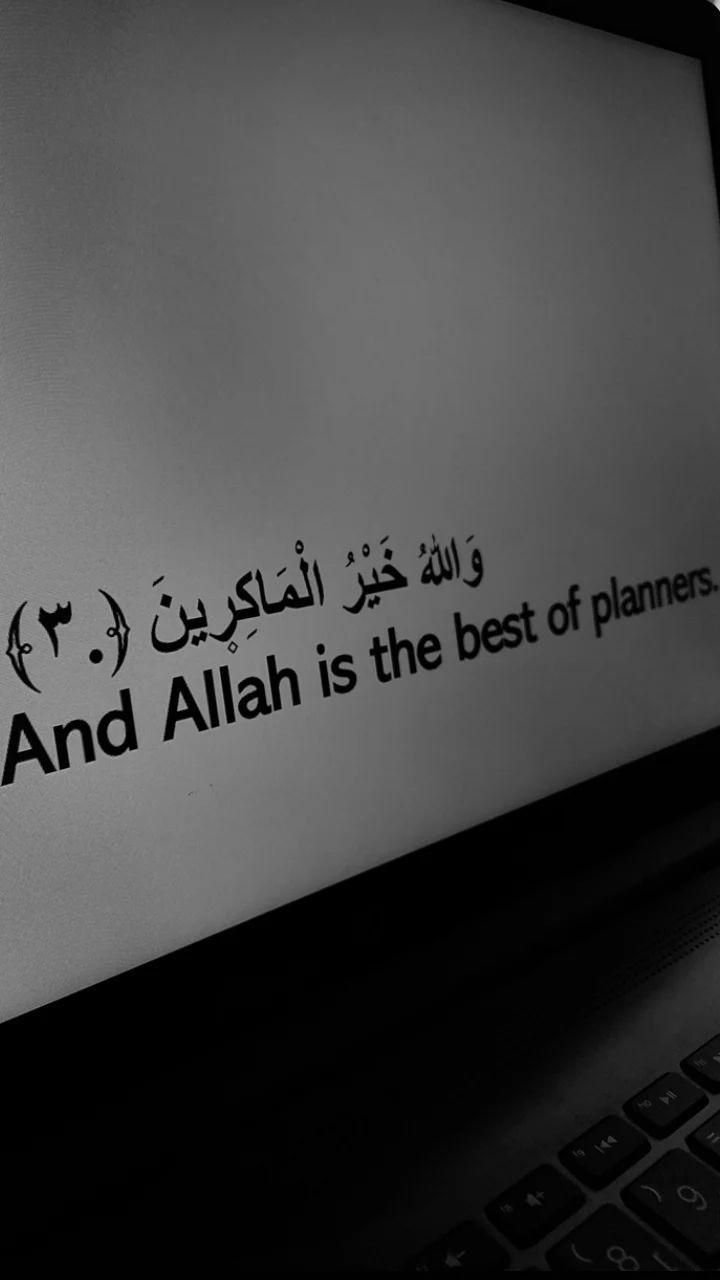 وَاللَّهُ خَيْرُ الْمَاكِرِينَ ﴿٣٠﴾
And Allah is the best of planners.
f10
f9
) 9
( 8